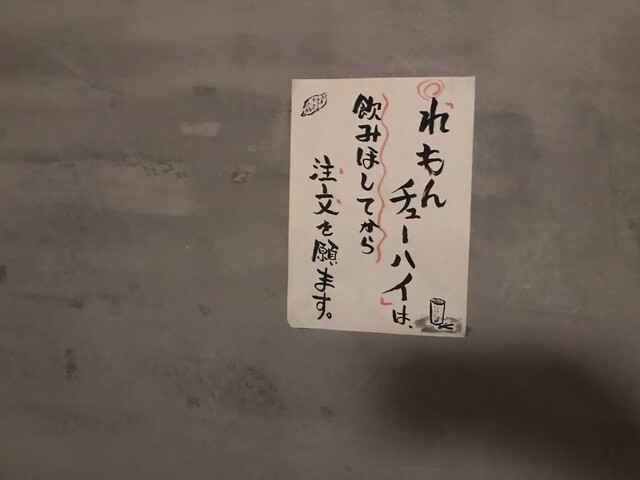 れもん
チューハイは、
飲みほしてから
注文を願います。